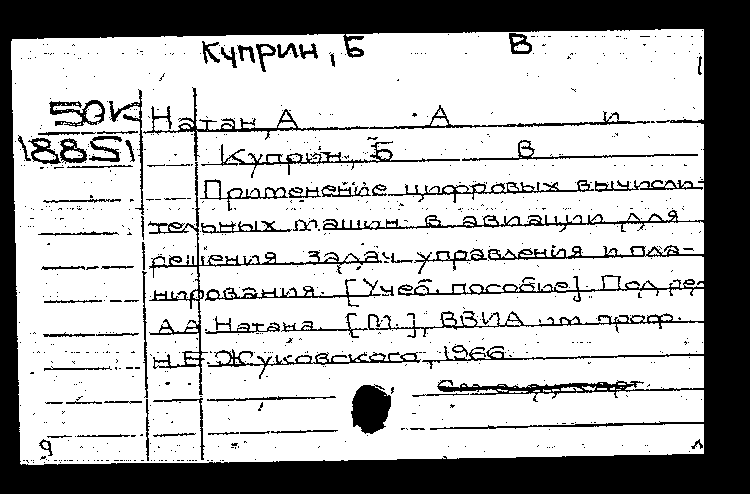 Куприн, Б В
50К Натан, А А и
188S1 Куприн, Б В
Применение цифровых вычисли-
тельных машин в авиации для
решения задач управления и пла-
нирования. [Учеб. пособие]. Под ред
А.А. Натана. [М.], ВВИА им проф.
Н.Е. Жуковского, 1966.
9